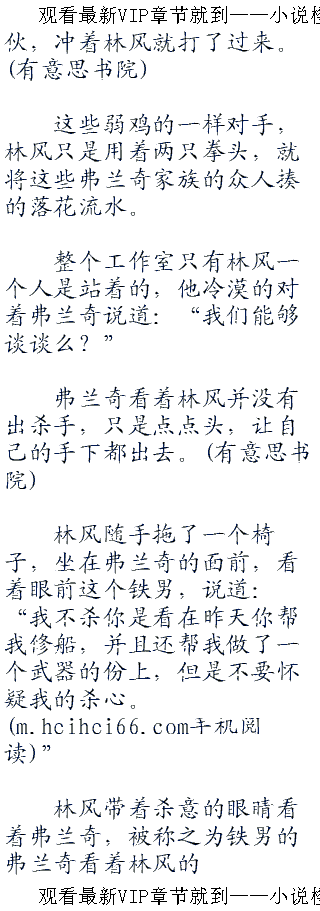 观看最新VIP章节就到——小说楼
伙，冲着林风就打了过来。
(有意思书院)
这些弱鸡的一样对手，
林风只是用着两只拳头，就
将这些弗兰奇家族的众人揍
的落花流水。
整个工作室只有林风一
个人是站着的，他冷漠的对
着弗兰奇说道：“我们能够
谈谈么？”
弗兰奇看着林风并没有
出杀手，只是点点头，让自
己的手下都出去。(有意思书
院)
林风随手拖了一个椅
子，坐在弗兰奇的面前，看
着眼前这个铁男，说道：
“我不杀你是看在昨天你帮
我修船，并且还帮我做了一
个武器的份上，但是不要怀
疑我的杀心。
(m.hcihci66.com手机阅
读)”
林风带着杀意的眼睛看
着弗兰奇，被称之为铁男的
弗兰奇看着林风的
观看最新VIP章节就到——小说楼